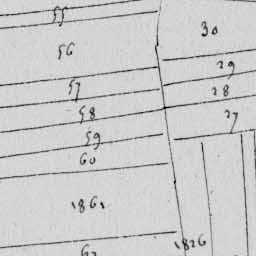 55
30
56
29
57
28
58
27
59
60
1861
1826